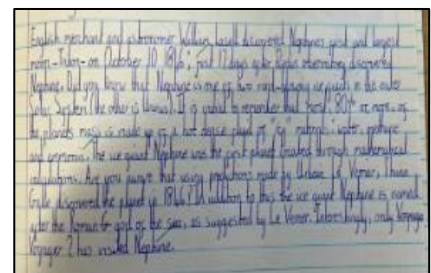 English merchant and astronomer William Lassell discovered Neptunes first and largest
moon - Triton - on October 10 1846; just 17 days after Berlin observatory discovered
Neptune. Did you know that Neptune is one of two giants in the outer
Solar System (the other is Uranus)? It is to remember that most, 80% or more, of
the planets mass is made up of a hot dense fluid of "icy" materials: water, methane
and ammonia. The ice giant Neptune was the first planet located through mathematical
calculations. Are you that using predictions made by Urbain Le Verrier,
Galle discovered the planet in 1846? In addition to this the ice giant Neptune is named
after the Roman god of the sea, as suggested by Le Verrier. Interestingly, only
Voyager 2 has visited Neptune.